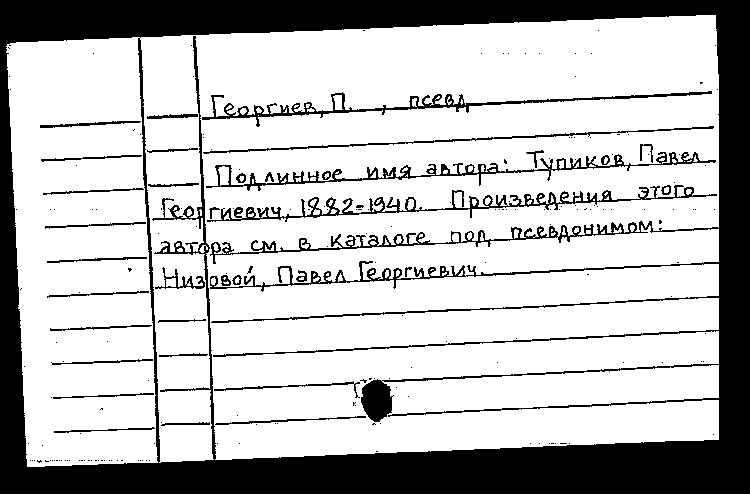 Георгиев, П. , псевд
Подлинное имя автора: Тупиков, Павел
Георгиевич, 1882-1940. Произведения этого
автора см. в каталоге под псевдонимом:
Низовой, Павел Георгиевич.